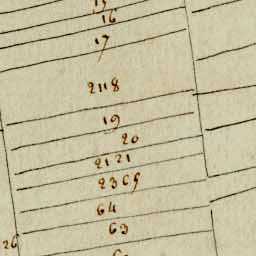 15
16
17
2118
19
20
2121
2369
64
63
26